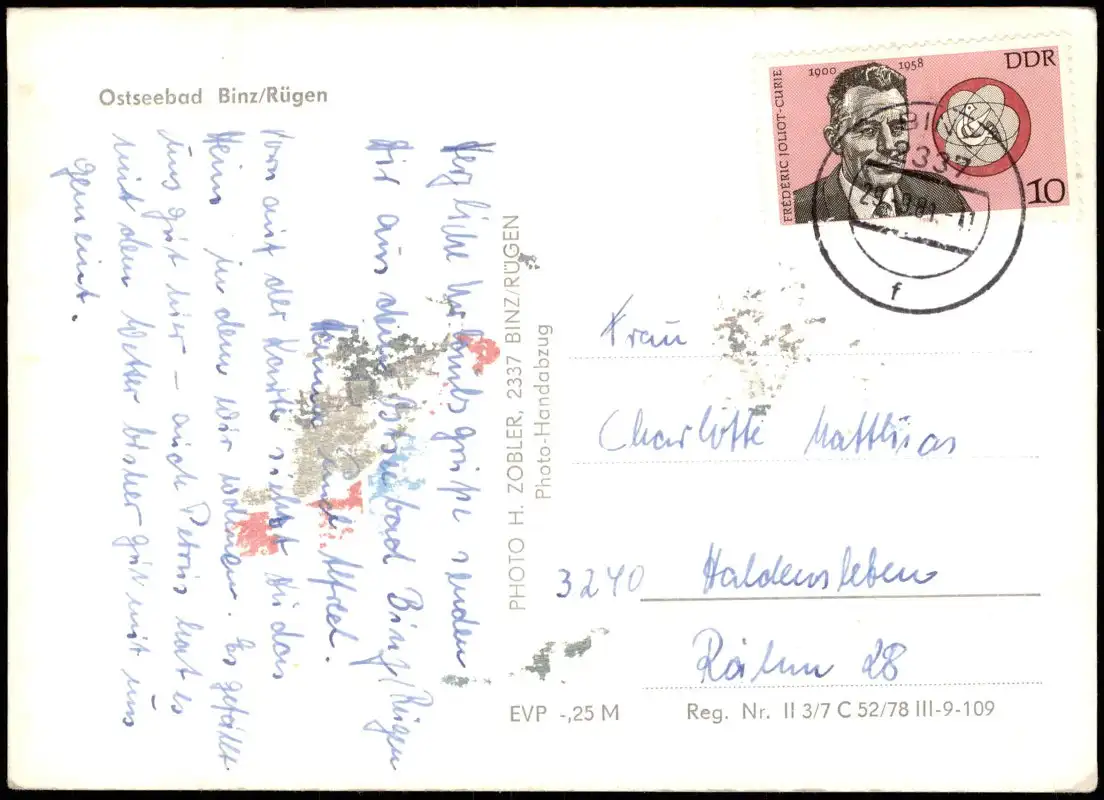 Ostseebad Binz/Rügen
Herzliche Urlaubsgrüße senden
Dir aus dem Ostseebad Binz/Rügen
Hanna und Alfred.
Vorn auf der Karte siehst Du das
Heim in dem wir wohnen. Es gefällt
uns gut hier – auch Petrus hat es
mit dem Wetter bisher gut mit uns
gemeint.
PHOTO H. ZOBLER, 2337 BINZ/RÜGEN
Photo-Handabzug
FRÉDÉRIC JOLIOT-CURIE
1900 1958
DDR
10
BINZ
2337
81.-11
f
Frau
Charlotte Matthias
3240 Haldensleben
28
EVP -,25 M
Reg. Nr. II 3/7 C 52/78 III-9-109